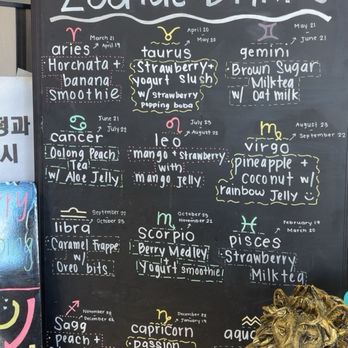 Zodiac Drinks
♈ March 21 → April 19
aries
Horchata +
banana
Smoothie
♉ April 20 → May 20
taurus
Strawberry +
yogurt Slush
w/ strawberry
popping boba
♊ May 21 → June 21
gemini
Brown Sugar
Milktea
w/ Oat milk
♋ June 21 → July 22
cancer
Oolong Peach
Tea
w/ Aloe Jelly
♌ July 23 → August 22
leo
mango + strawberry
with
mango Jelly
♍ August 23 → September 22
virgo
pineapple +
coconut w/
rainbow Jelly
♎ September 22 → October 23
libra
Caramel Frappe
w/
Oreo bits
♏ October 23 → November 21
Scorpio
Berry Medley
+
Yogurt smoothie
♓ February 19 → March 20
pisces
Strawberry
Milktea
♐ November 22 → December 21
Sagg
peach +
♑ December 22 → January 19
capricorn
passion
aqua